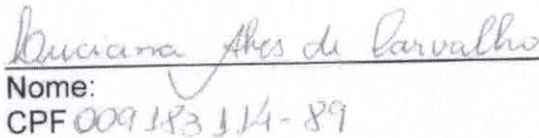 Luciana Alves de Carvalho
Nome:
CPF 009183114-89